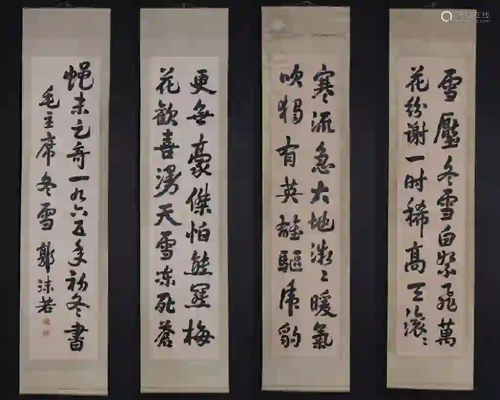 雪壓冬雲白絮飛萬
花紛謝一时稀高天滾〻
寒流急大地微〻暖氣
吹獨有英雄驅虎豹
更無豪傑怕熊羆梅
花歡喜漫天雪凍死蒼
蠅未足奇一九六五年初冬書
毛主席冬雲 郭沫若